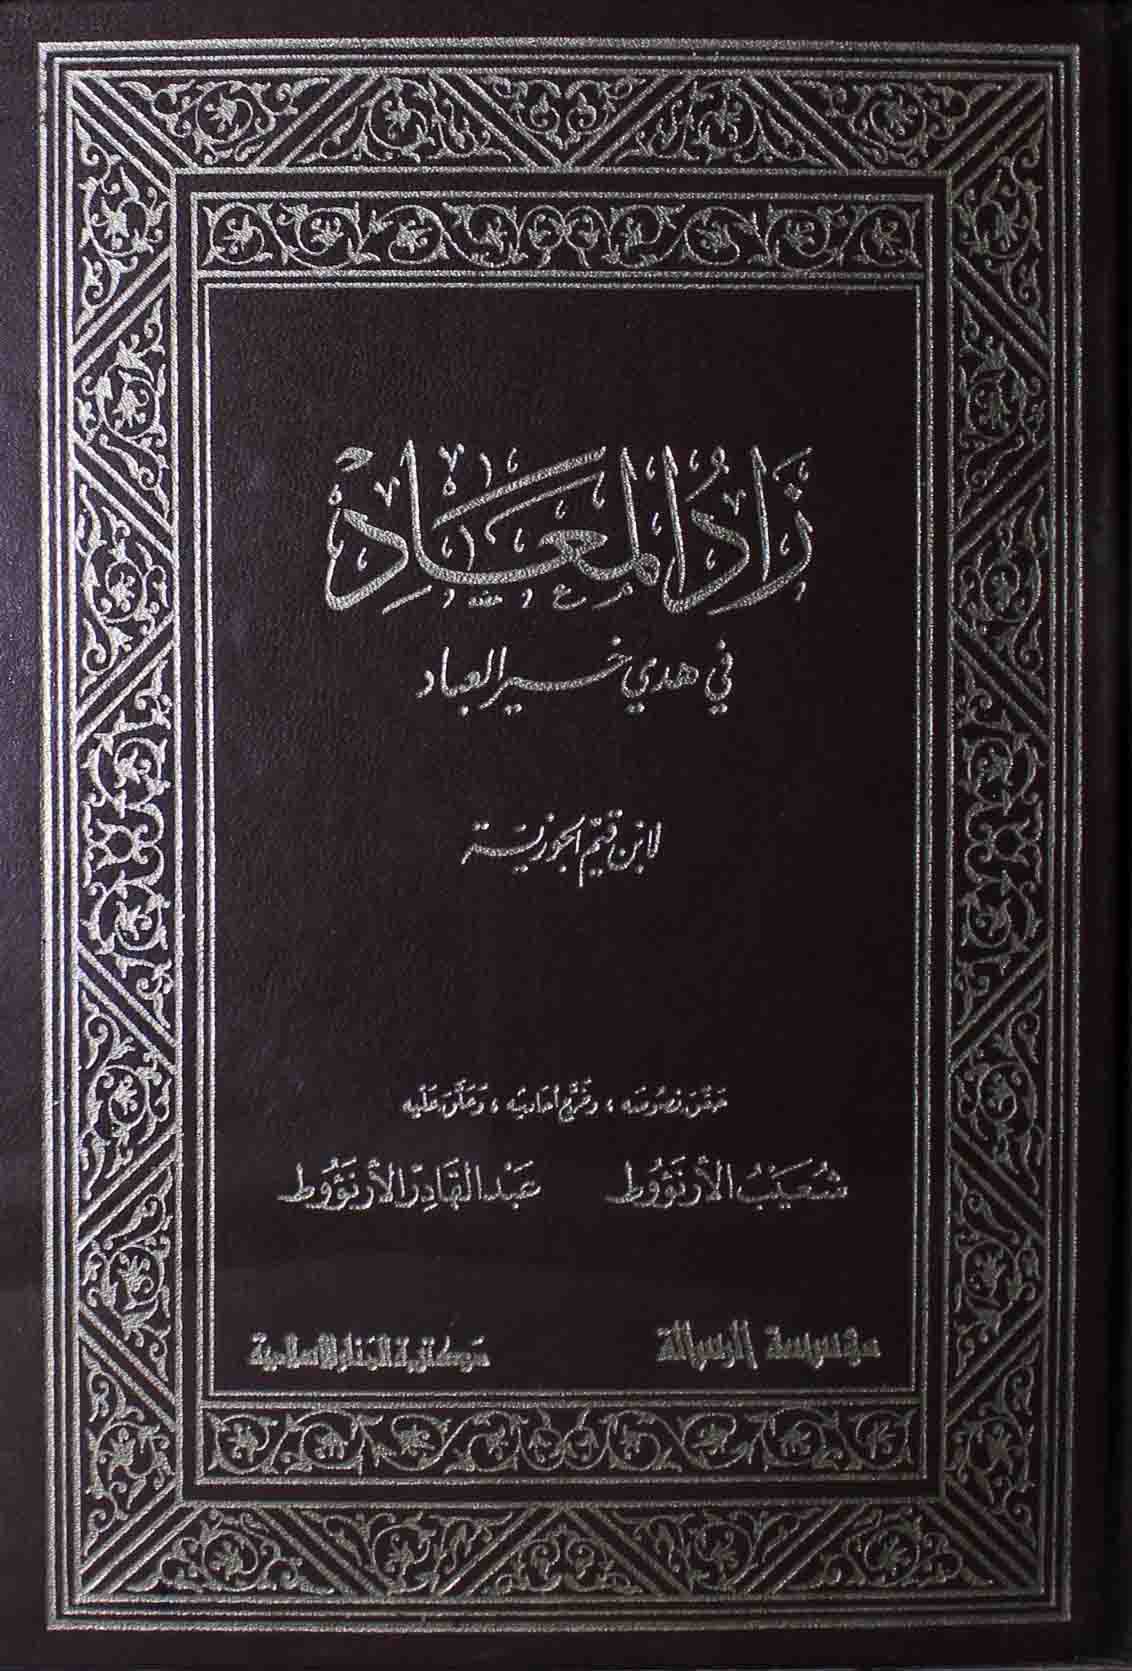 زَادُ المَعَادْ
في هدي خير العباد
لابن قيّم الجوزيّة
حَقَّقَ نصُوصَه ، وخَرَّجَ أحَاديثه ، وَعَلَّقَ عَلَيه
شُعَيبُ الأرنَؤُوط عَبْدُ القَادِر الأرنَؤُوط
مؤسسة الرسالة مَكتبة المنار الإسلامية